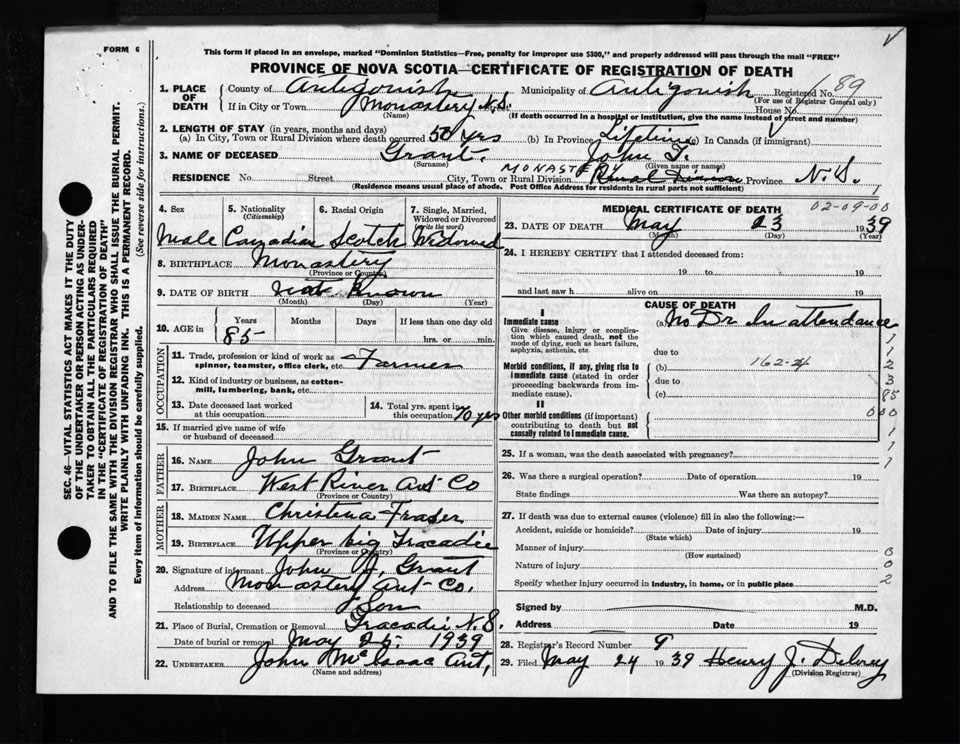 FORM 6
This form if placed in an envelope, marked "Dominion Statistics—Free, penalty for improper use $300," and properly addressed will pass through the mail "FREE"
PROVINCE OF NOVA SCOTIA—CERTIFICATE OF REGISTRATION OF DEATH
SEC. 46—VITAL STATISTICS ACT MAKES IT THE DUTY
OF THE UNDERTAKER OR PERSON ACTING AS UNDER-
TAKER TO OBTAIN ALL THE PARTICULARS REQUIRED
IN THE "CERTIFICATE OF REGISTRATION OF DEATH"
AND TO FILE THE SAME WITH THE DIVISION REGISTRAR WHO SHALL ISSUE THE BURIAL PERMIT.
WRITE PLAINLY WITH UNFADING INK. THIS IS A PERMANENT RECORD.
Every item of information should be carefully supplied. (See reverse side for instructions.)
1. PLACE OF DEATH County of Antigonish Municipality of Antigonish Registered No. 189
(For use of Registrar General only)
If in City or Town Monastery N.S. House No.
(Name) (If death occurred in a hospital or institution, give the name instead of street and number)
2. LENGTH OF STAY (in years, months and days)
(a) In City, Town or Rural Division where death occurred 50 yrs (b) In Province Lifetime (c) In Canada (if immigrant)
3. NAME OF DECEASED Grant. John
(Surname) (Given name or names)
RESIDENCE No. Street. City, Town or Rural Division MONASTERY Rural Division Province N.S.
(Residence means usual place of abode. Post Office Address for residents in rural parts not sufficient)
1
4. Sex 5. Nationality (Citizenship) 6. Racial Origin 7. Single, Married, Widowed or Divorced (write the word)
Male Canadian Scotch Widowed
8. BIRTHPLACE Monastery
(Province or Country)
9. DATE OF BIRTH not Known
(Month) (Day) (Year)
10. AGE in Years Months Days If less than one day old
85 hrs. or min.
OCCUPATION
11. Trade, profession or kind of work as spinner, teamster, office clerk, etc. Farmer
12. Kind of industry or business, as cotton-mill, lumbering, bank, etc.
13. Date deceased last worked at this occupation
14. Total yrs. spent in this occupation 70 yrs
15. If married give name of wife or husband of deceased
FATHER
16. NAME John Grant
17. BIRTHPLACE West River Ant Co
(Province or Country)
MOTHER
18. MAIDEN NAME Christina Fraser
19. BIRTHPLACE Upper big Tracadie
(Province or Country)
20. Signature of informant John Grant
Address Monastery Ant Co.
Relationship to deceased Son
21. Place of Burial, Cremation or Removal Tracadie N.S.
Date of burial or removal May 25. 1939
22. UNDERTAKER John McIsaac Ant,
(Name and address)
MEDICAL CERTIFICATE OF DEATH 02-09-00
23. DATE OF DEATH May 23 1939
(Month) (Day) (Year)
24. I HEREBY CERTIFY that I attended deceased from:
19 to 19
and last saw h alive on 19
CAUSE OF DEATH
I
Immediate cause
Give disease, injury or complication which caused death, not the mode of dying, such as heart failure, asphyxia, asthenia, etc.
(a) No Dr In attendance
due to
Morbid conditions, if any, giving rise to immediate cause (stated in order proceeding backwards from immediate cause).
(b) 162-4
due to
(c)
II
Other morbid conditions (if important) contributing to death but not causally related to immediate cause.
1
1
2
3
85
000
1
1
25. If a woman, was the death associated with pregnancy?
26. Was there a surgical operation? Date of operation 19
State findings Was there an autopsy?
27. If death was due to external causes (violence) fill in also the following:—
Accident, suicide or homicide? Date of injury 19
(State which)
Manner of injury 0
(How sustained)
Nature of injury 0
Specify whether injury occurred in industry, in home, or in public place 2
Signed by M.D.
Address Date 19
28. Registrar's Record Number 9
29. Filed May 24 1939 Henry J. Delorey
(Division Registrar)